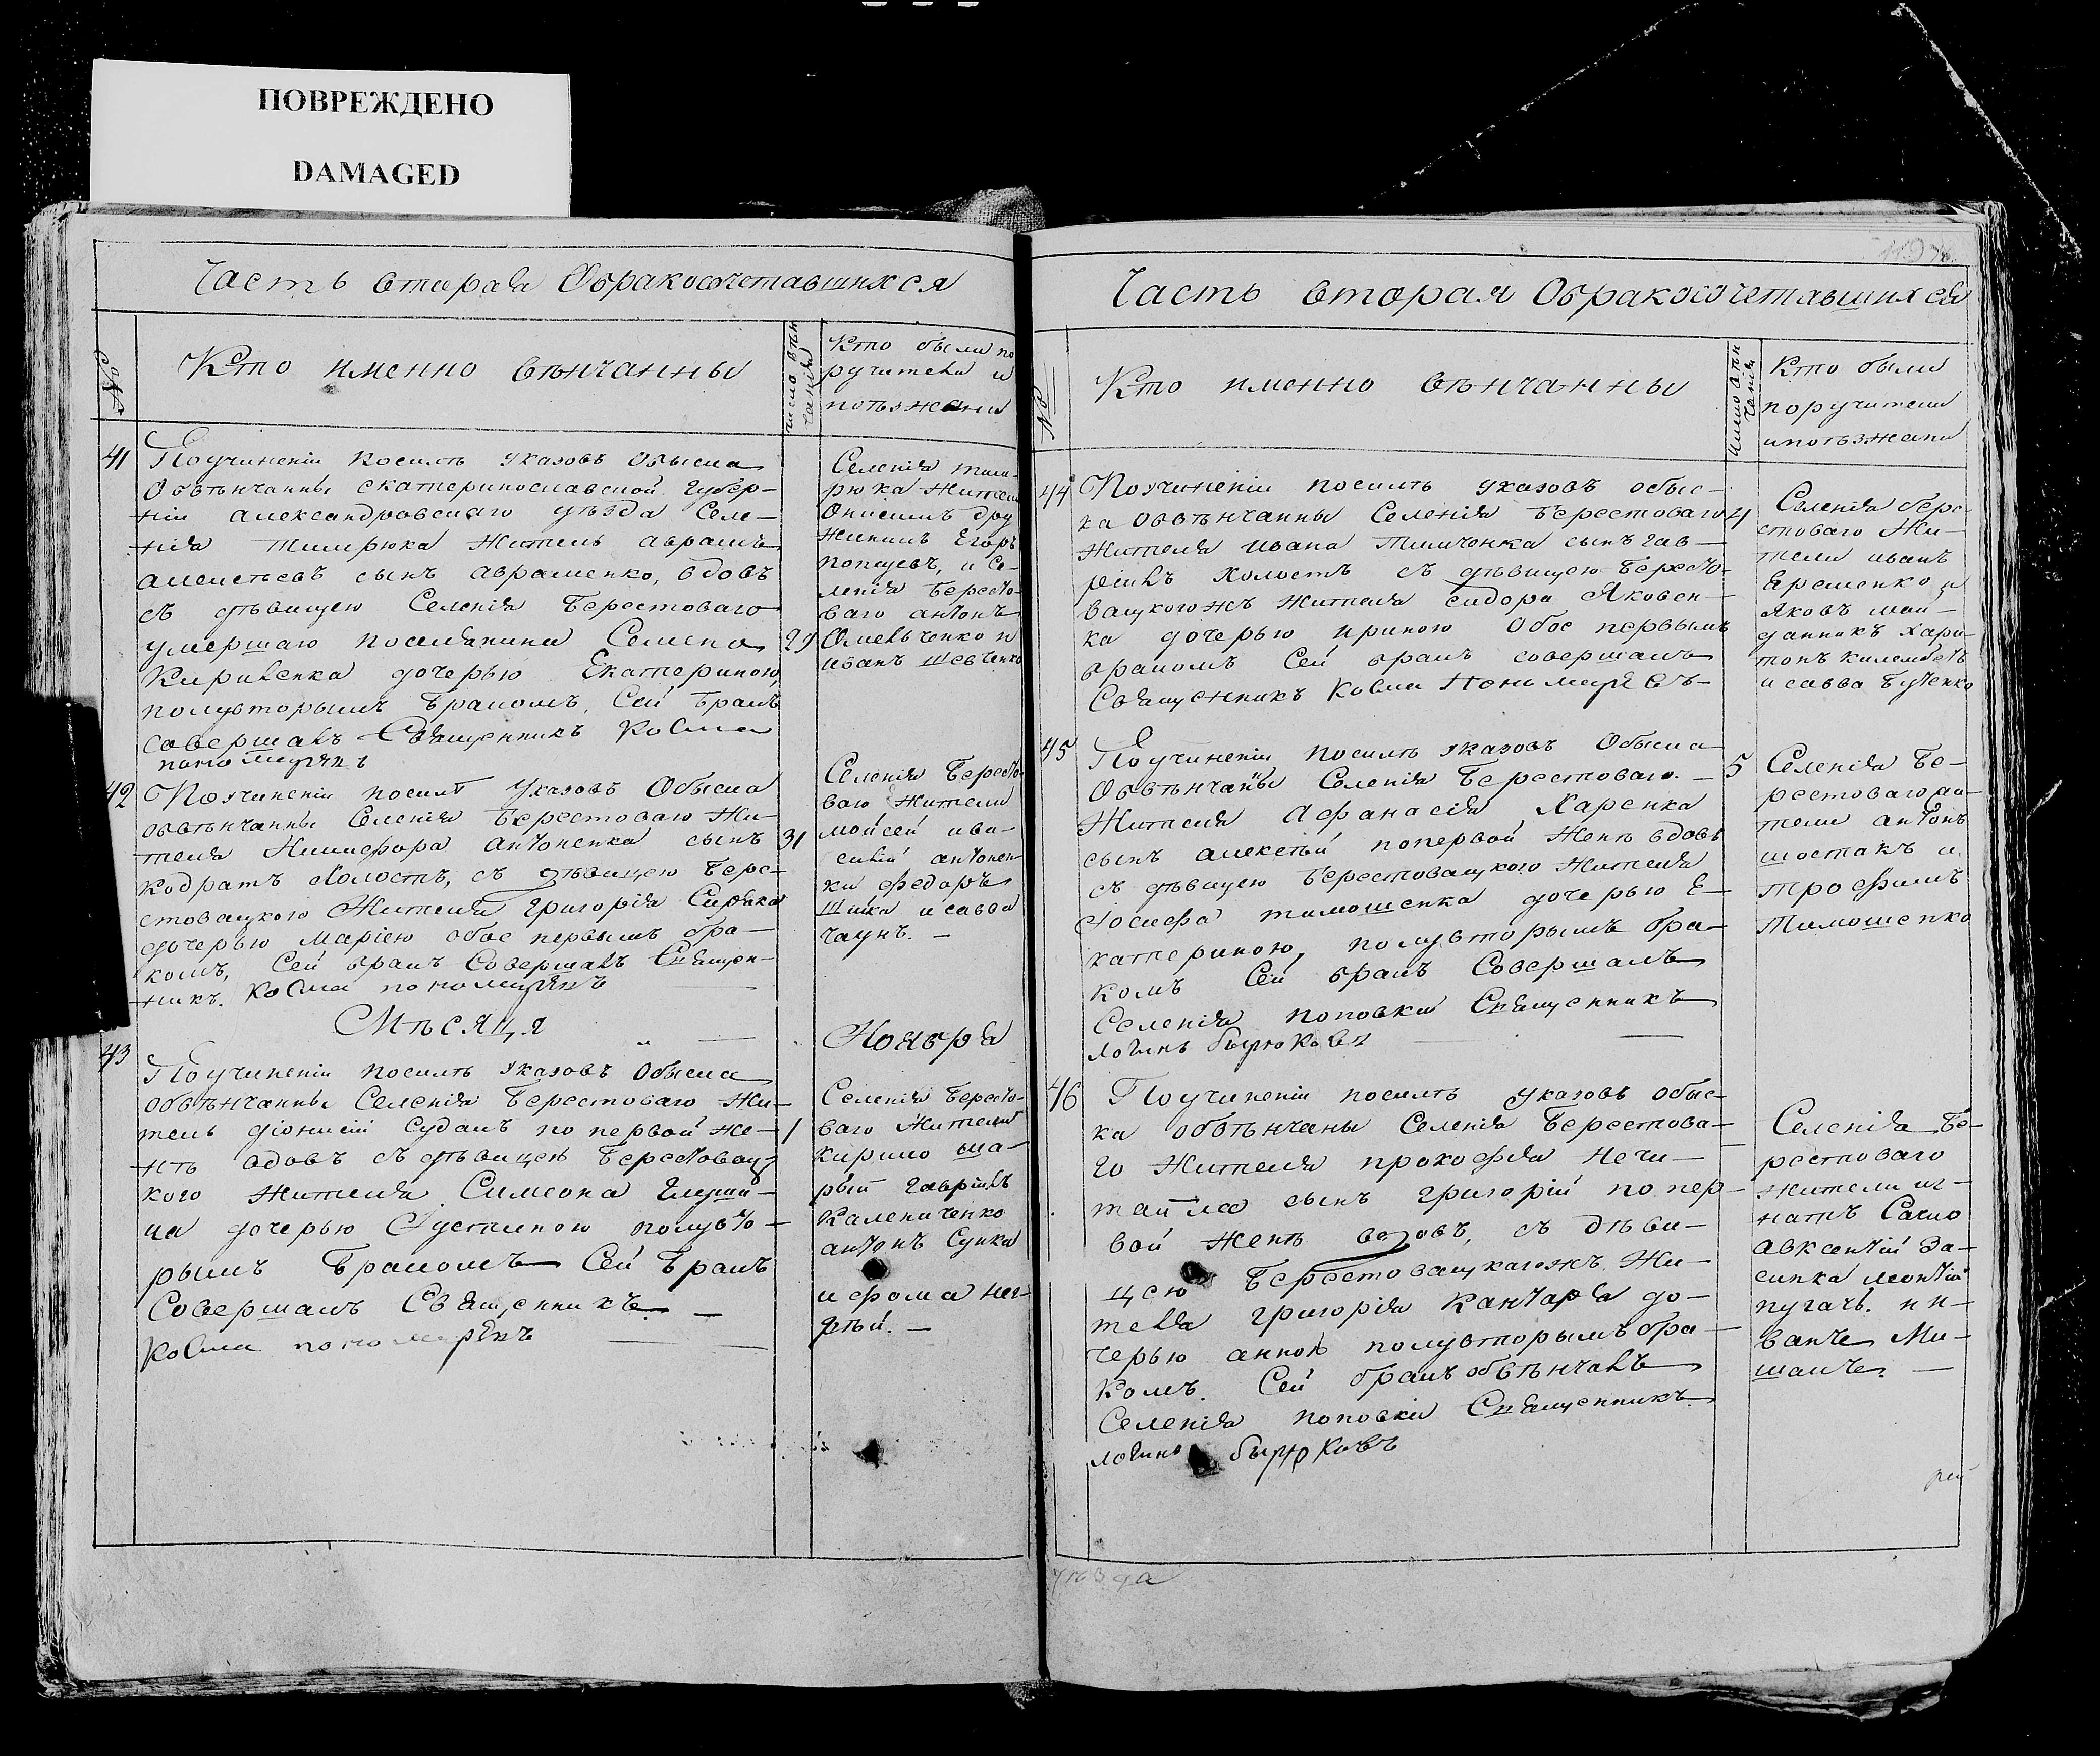 ПОВРЕЖДЕНО
DAMAGED
Часть вторая Обракосочетавшихся
№
Кто именно вѣнчанны
число вѣн
чанія
Кто были по
ручители и
поѣзжани
41
По учиненіи посилѣ указовъ обыска
Обвѣнчанны екатеринославской губер-
ніи александровскаго уѣзда Селе-
нія житель аврамъ
сынъ авраменко, вдовъ
съ дѣвицею Селенія берестоваго
умершаго поселянина Семена
Кириленка дочерью Екатериною,
полувторымъ бракомъ, Сей бракъ
совершалъ Священникъ Косма
пономаревъ
29
Селенія
рюка жители
дру
жининъ Егоръ
и Се-
ленія бересто-
ваго антонъ
Омельченко и
иванъ шевченко
42
По учиненіи посилѣ указовъ Обыска
обвѣнчанны Селенія берестоваго жи-
теля Никифора антоненка сынъ
кодратъ холостъ, съ дѣвицею бере-
стовацкого жителя григорія Сиряка
дочерью маріею обое первымъ бра-
комъ, Сей бракъ Совершалъ Священ-
никъ. Косма пономаревъ
31
Селенія бересто-
ваго жители
мойсей и ва-
силій антонен-
ки федоръ
и савва
чаунъ. -
Мѣсяца
Ноября
43
По учиненіи посилѣ указовъ обыска
обвѣнчанны Селенія берестоваго жи-
тель діонисій Суданъ по первой же-
нѣ вдовъ съ дѣвицею берестовац-
кого жителя Симеона
ца дочерью Іустиною полувто-
рымъ бракомъ Сей бракъ
Совершалъ Священникъ. -
Косма пономаревъ
1
Селенія бересто-
ваго жители
кирило ша-
рый гавріилъ
Калениченко
антонъ Супка
и фома нег-
рѣй. -
Часть вторая Обракосочетавшихся
№
Кто именно вѣнчанны
число вѣн
чанія
Кто были
поручители
и поѣзжани
44
По учиненіи посилѣ указовъ обыс-
ка обвѣнчанны Селенія берестоваго
жителя ивана тимченка сынъ гав-
ріилъ холостъ съ дѣвицею бересто-
вацкого жъ жителя Сидора Яковен-
ка дочерью ириною Обое первымъ
бракомъ Сей бракъ совершалъ
Священникъ Косма Пономаревъ-
4
Селенія бере-
стоваго жи-
тели иванъ
Еременко и
Яковъ май-
данникъ хари-
тонъ
и савва бутенко
45
По учиненіи посилѣ указовъ Обыска
Обвѣнчанны Селенія берестоваго. -
жителя Афанасія Харенка
сынъ алексѣй попервой женѣ вдовъ
съ дѣвицею берестовацкого жителя
Іосифа тимошенка дочерью Е-
катериною, полувторымъ бра-
комъ Сей бракъ Совершалъ
Селенія поповки Священникъ
логинъ бырюковъ
5
Селенія бе-
рестоваго жи-
тели антонъ
шостакъ и
трофимъ
Тимошенко
46
По учиненіи посилѣ указовъ обыс-
ка обвѣнчаны Селенія берестова-
го жителя прокофія нечи-
тайла сынъ григорій по пер-
вой женѣ вдовъ, съ дѣви-
цею берестовацкагожъ жи-
теля григорія Кантаря до-
черью анною полувторымъ бра-
комъ. Сей бракъ обвѣнчалъ
Селенія поповки Священникъ
логинъ бырюковъ
Селенія бе-
рестоваго
жители иг-
натъ Сачно
авксентій за-
сипка леонтій
пугачъ. и и-
ванъ Ми-
шакъ. -
уѣзда